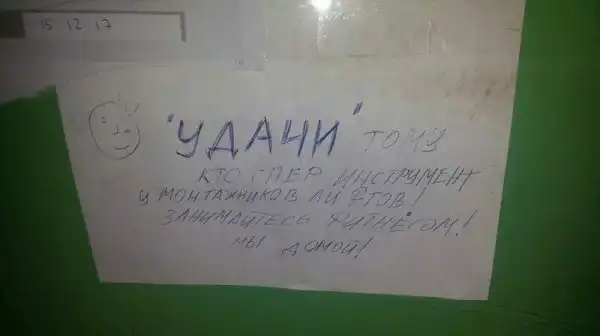 15 12 17
"УДАЧИ" ТОМУ
КТО СПЕР ИНСТРУМЕНТ
У МОНТАЖНИКОВ ЛИФТОВ!
ЗАНИМАЙТЕСЬ ФИТНЕСОМ!
МЫ ДОМОЙ!